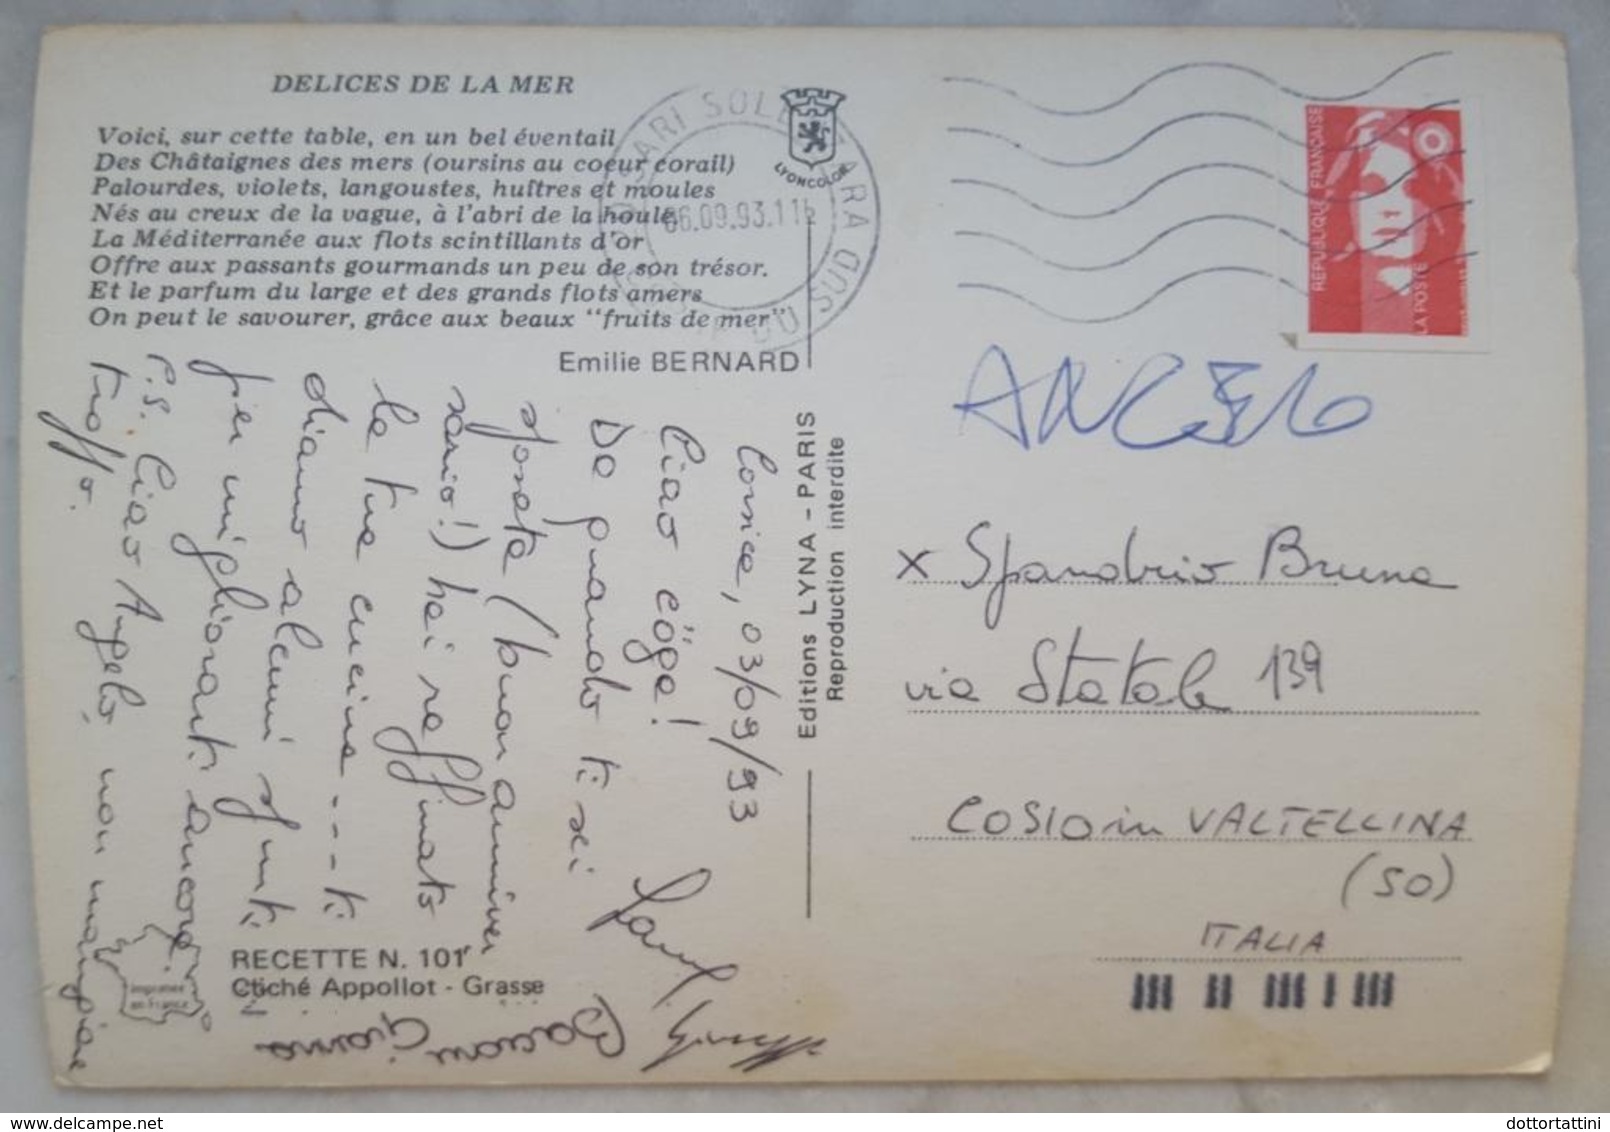 DELICES DE LA MER
Voici, sur cette table, en un bel éventail
Des Châtaignes des mers (oursins au coeur corail)
Palourdes, violets, langoustes, huîtres et moules
Nés au creux de la vague, à l'abri de la houle,
La Méditerranée aux flots scintillants d'or
Offre aux passants gourmands un peu de son trésor.
Et le parfum du large et des grands flots amers
On peut le savourer, grâce aux beaux "fruits de mer"
Emilie BERNARD
LYONCOLOR
SARI SOLENZARA
DU SUD
06.09.93.11
REPUBLIQUE FRANÇAISE
LA POSTE
Corsica, 03/09/93
Ciao cöga!
Da quando ti sei
sposata (buon anniver
sario!) hai raffinato
la tua cucina --- ti
diamo alcuni spunti
per migliorarti ancora.
P.S. Ciao Angelo, non mangiare
troppo.
Gianna
Editions LYNA - PARIS
Reproduction interdite
RECETTE N. 101
Cliché Appollot - Grasse
Imprimée
en France
ANGELO
x Spandrio Bruna
via Statale 139
COSIO in VALTELLINA
(SO)
ITALIA
dottortattini